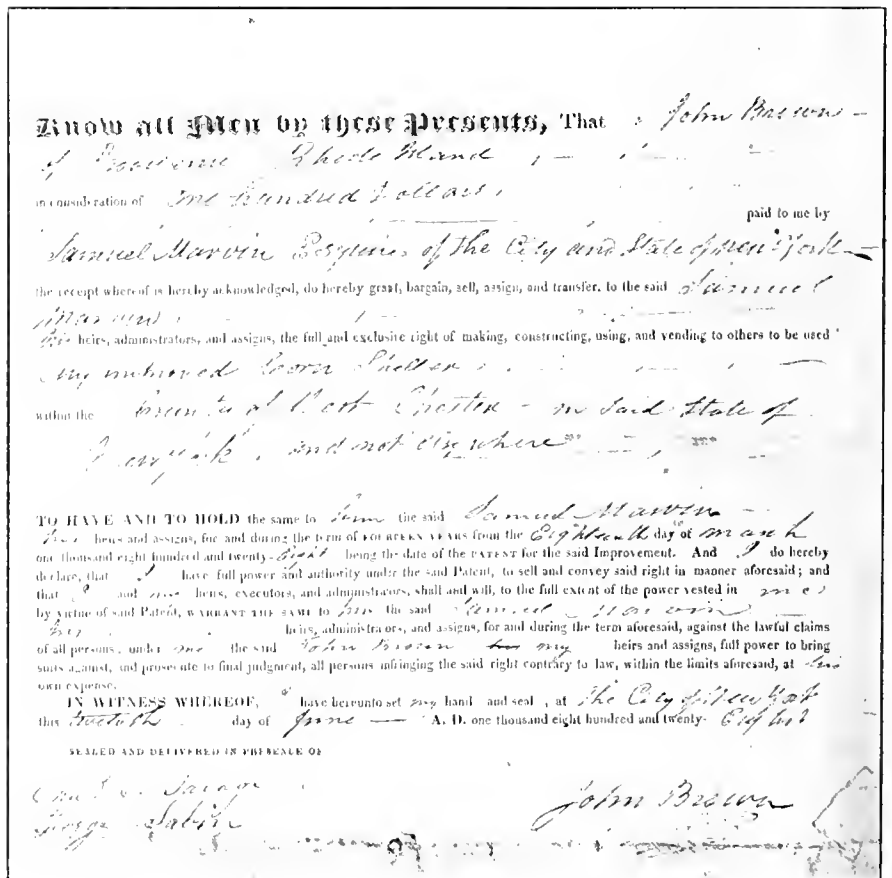 Know all Men by these Presents, That I John Brown
of Providence Rhode Island
in consideration of One Hundred Dollars
paid to me by
Samuel Marvin Esquire of the City and State of New York
the receipt whereof is hereby acknowledged, do hereby grant, bargain, sell, assign, and transfer, to the said Samuel
Marvin
his heirs, administrators, and assigns, the full and exclusive right of making, constructing, using, and vending to others to be used
my improved Corn Sheller
within the County of West Chester in said State of
New York and not elsewhere
TO HAVE AND TO HOLD the same to him the said Samuel Marvin
his heirs and assigns, for and during the term of FOURTEEN YEARS from the Eighteenth day of March
one thousand eight hundred and twenty-Eight being the date of the PATENT for the said Improvement. And I do hereby
declare, that I have full power and authority under the said Patent, to sell and convey said right in manner aforesaid; and
that I and my heirs, executors, and administrators, shall and will, to the full extent of the power vested in me
by virtue of said Patent, WARRANT THE SAME to him the said Samuel Marvin
his heirs, administrators, and assigns, for and during the term aforesaid, against the lawful claims
of all persons, under me the said John Brown my heirs and assigns, full power to bring
suits against, and prosecute to final judgment, all persons infringing the said right contrary to law, within the limits aforesaid, at his
own expense.
IN WITNESS WHEREOF, I have hereunto set my hand and seal, at The City of New York
this day of June A. D. one thousand eight hundred and twenty-Eight
SEALED AND DELIVERED IN PRESENCE OF
Savage
George Sabin
John Brown